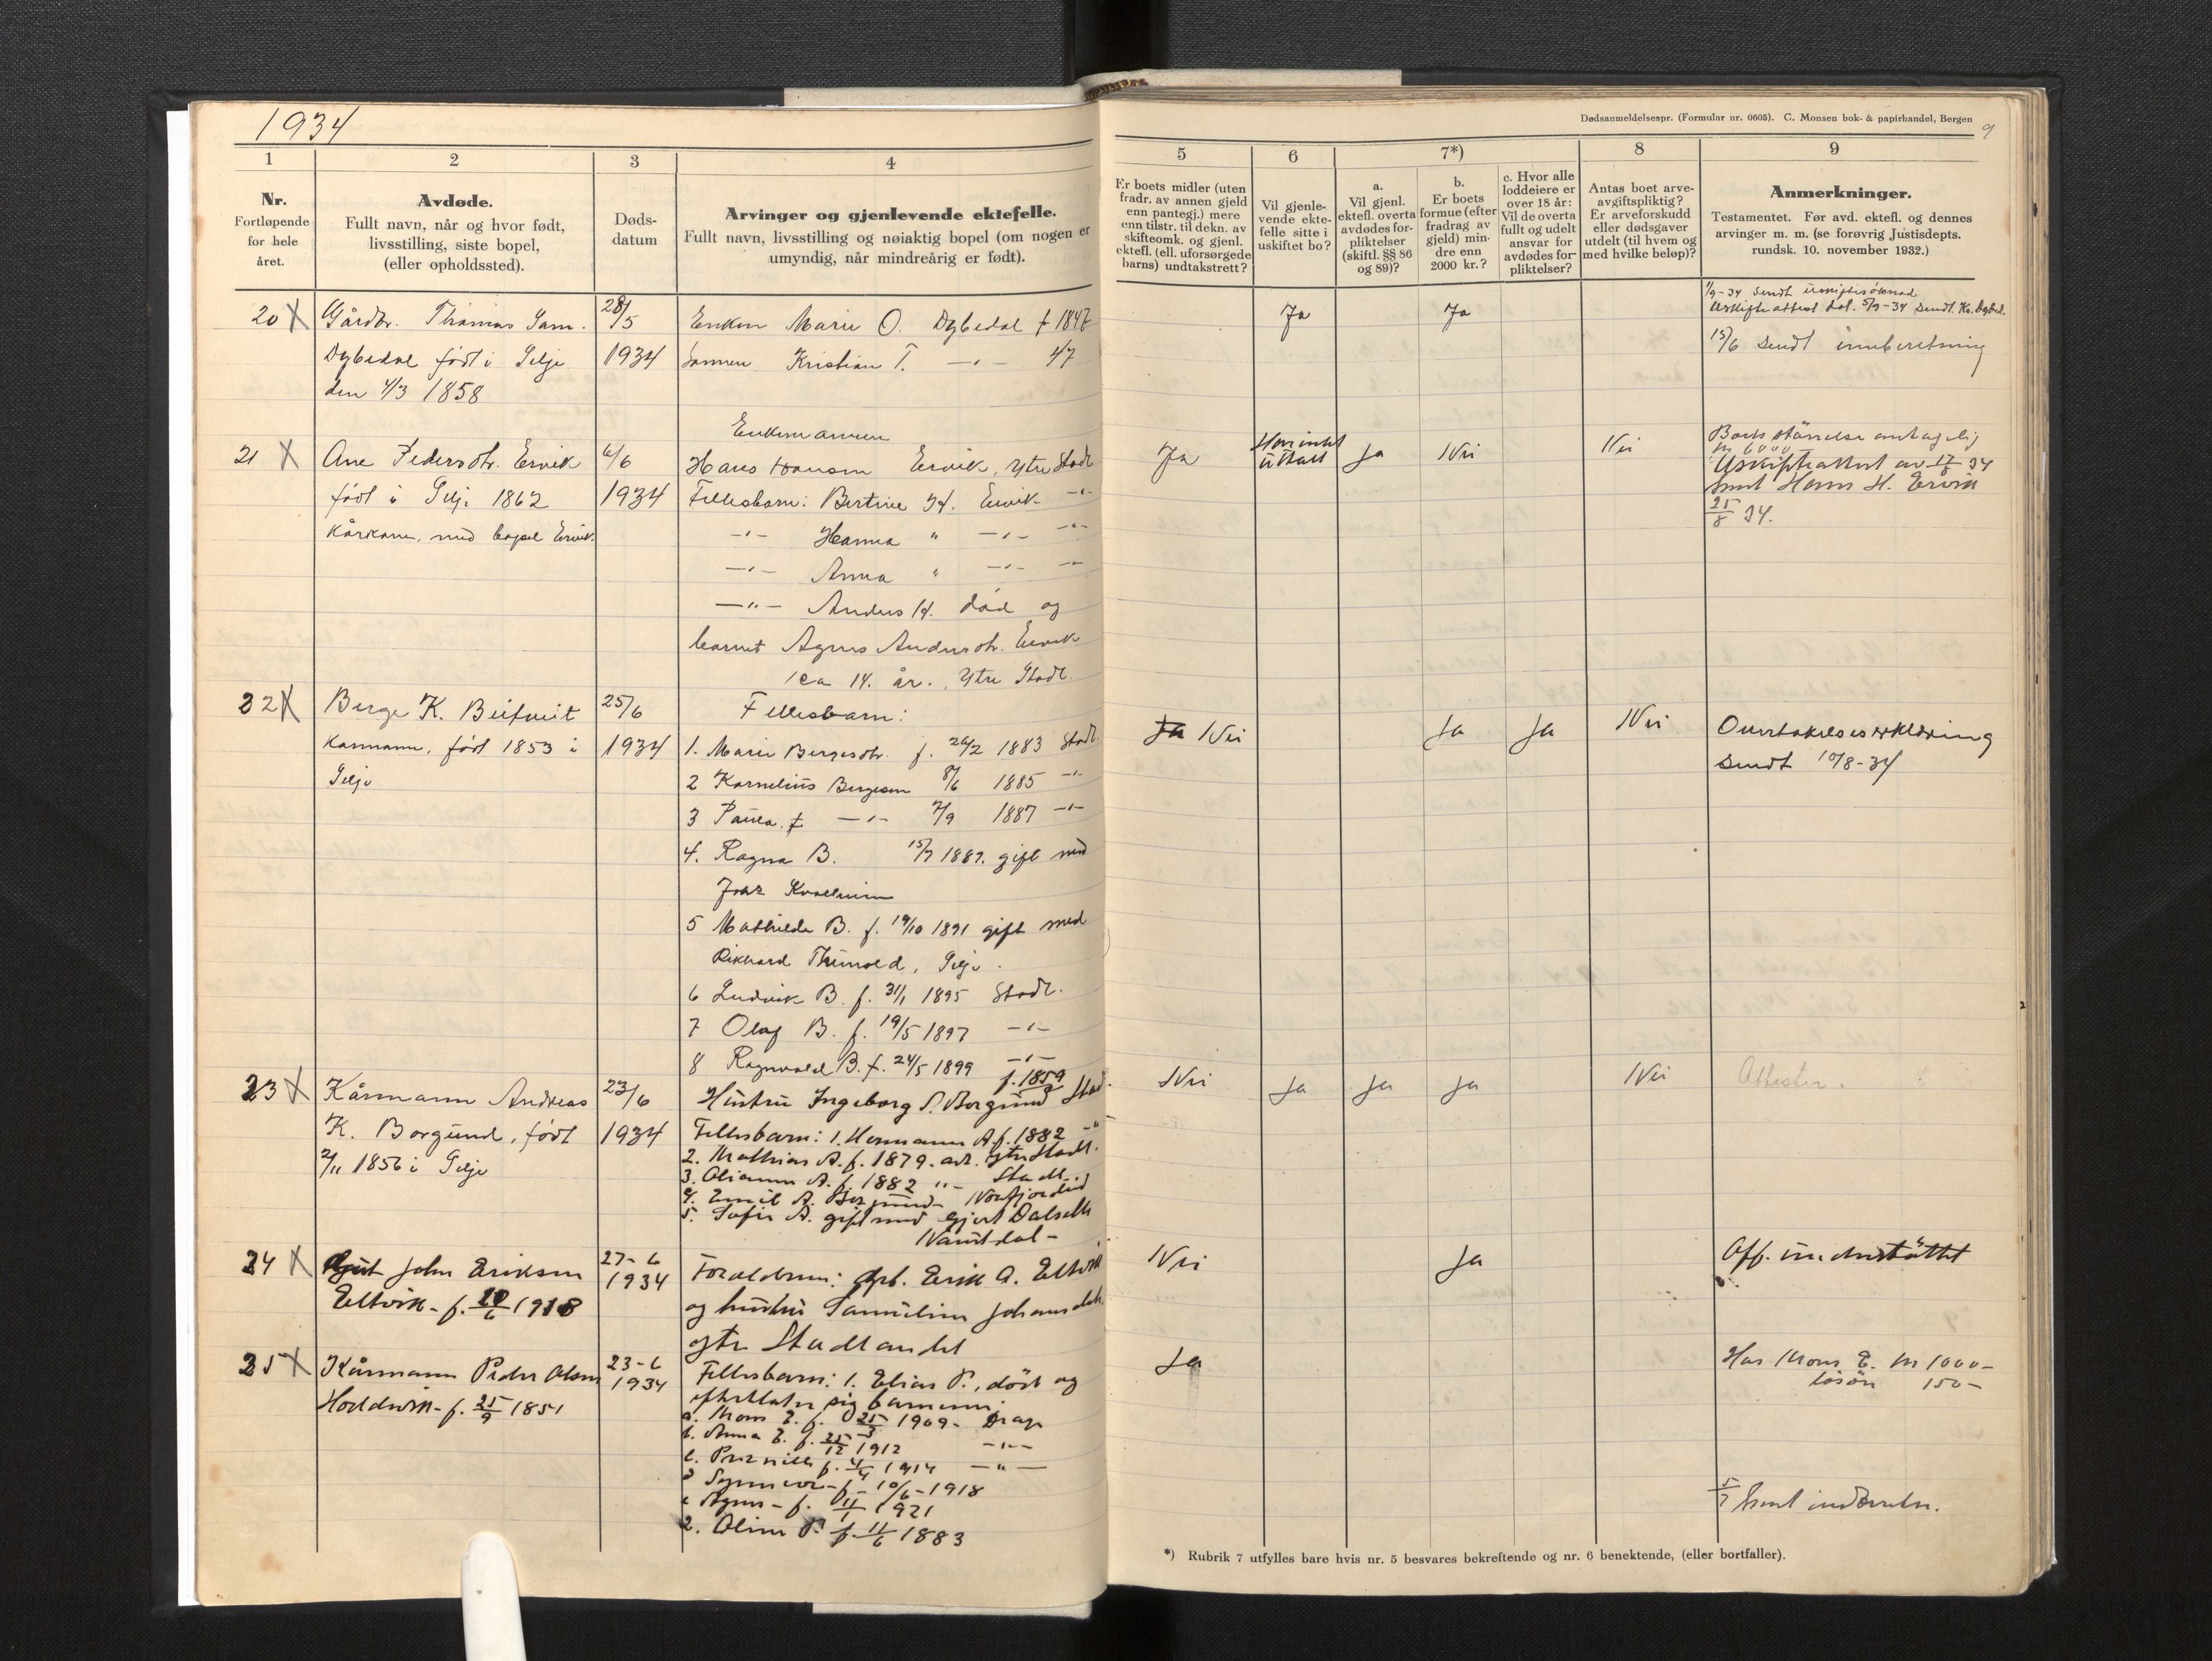 1934
Dødsanmeldelsespr. (Formular nr. 0605). C. Monsen bok- & papirhandel, Bergen
9
1
2
3
4
5
6
7*)
8
9
Nr.
Fortløpende
for hele
året.
Avdøde.
Fullt navn, når og hvor født,
livsstilling, siste bopel,
(eller opholdssted).
Døds-
datum
Arvinger og gjenlevende ektefelle.
Fullt navn, livsstilling og nøiaktig bopel (om nogen er
umyndig, når mindreårig er født).
Er boets midler (uten
fradr. av annen gjeld
enn pantegj.) mere
enn tilstr. til dekn. av
skifteomk. og gjenl.
ektefl. (ell. uforsørgede
barns) undtakstrett?
Vil gjenle-
vende ekte-
felle sitte i
uskiftet bo?
a.
Vil gjenl.
ektefl. overta
avdødes for-
pliktelser
(skiftl. §§ 86
og 89)?
b.
Er boets
formue (efter
fradrag av
gjeld) min-
dre enn
2000 kr.?
c. Hvor alle
loddeiere er
over 18 år:
Vil de overta
fullt og udelt
ansvar for
avdødes for-
pliktelser?
Antas boet arve-
avgiftspliktig?
Er arveforskudd
eller dødsgaver
utdelt (til hvem og
med hvilke beløp)?
Anmerkninger.
Testamentet. Før avd. ektefl. og dennes
arvinger m. m. (se forøvrig Justisdepts.
rundsk. 10. november 1932.)
20 X
Gårdbr. Thomas Sam.
Dybedal født i Selje
den 4/3 1858
28/5
1934
Enken Marie O. Dybedal f 1847
Sønnen Kristian T. -"- 47
Ja
Ja
15/6 sendt innberetning
21 X
Ane Pedersdtr. Ervik
født i Selje 1862
Kårkone, med bopel Ervik.
6/6
1934
Enkemannen
Hans Hansen Ervik, Ytre Stadl
Fellesbarn: Bertine H. Ervik -"-
-"- Hanna " -"- -"-
-"- Anna " -"- -"-
-"- Anders H. død og
barnet Agnes Andersdtr. Ervik
ca 14. år. Ytre Stadl.
Ja
Ja
Nei
Nei
Boets størrelse antagelig
kr 6000
Uskifteattest av 17/8 34
sendt Hans H. Ervik
25/8 34.
22 X
Berge K.
Kårmann, født 1853 i
Selje
25/6
1934
Fellesbarn:
1. Marie Bergesdtr. f. 26/2 1883 Stadl.
2 Kornelius Bergesen 8/6 1885 -"-
3 Paula f -"- 7/9 1887 -"-
4. Ragna B. 15/7 1889. gift med
5 Mathilde B. f. 19/10 1891 gift med
Rikhard, Selje.
6 Ludvik B. f. 31/1 1895 Stadl.
7 Olaf B. f. 19/5 1897 -"-
8 Ragnvald B. f. 24/5 1899 -"-
Ja Nei
Ja
Ja
Nei
Overtakelseserklæring
sendt 10/8-34
23 X
Kårmann Andreas
K. Borgund, født
2/11 1856 i Selje
23/6
1934
f. 1859
Hustru Ingeborg S. Borgund Stad.
Fellesbarn: 1. Hermann A f. 1882 -"-
2. Mathias A. f. 1879. adr. ytre Stadl.
3. Olianna A. f. 1882 "- Stadl.
4. Emil A. Borgund - Nordfjordeid
5. Sofie A. gift med Gjert Dalsett
Namsdal -
Nei
Ja
Ja
Ja
Nei
Attester.
24 X
Gut John Eriksen
Eltvik - f. 10/6 1918
27-6
1934
Foreldrene: gbr. Erik A. Eltvik
og hustru Samueline Johansdtr.
ytre Stadlandet
Nei
Ja
Off. understøttet
25 X
Kårmann Peder Olsen
Hoddevik - f. 25/9 1851
23-6
1934
Fellesbarn: 1. Elias P., død og
efterlater sig barnene:
a. Mons E. f. 25/3 1909 - Drage
b. Anna E. f. 25/12 1912 -"-
c. Pernille f. 4/4 1914 -"-
d Synnøve - f - 10/6 - 1918
e Agnes - f. 11/1 1921
2. Oline P. f. 11/6 1883
Ja
Hos Mons E. kr 1000 -
løsøre 150 -
5/7 sendt innberetn.
*) Rubrik 7 utfylles bare hvis nr. 5 besvares bekreftende og nr. 6 benektende, (eller bortfaller).